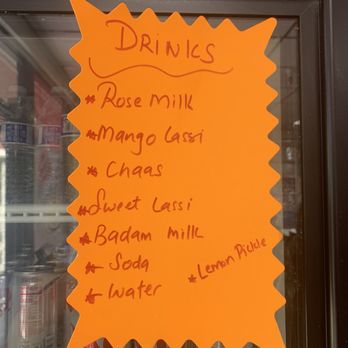 DRINKS
* Rose Milk
* Mango Lassi
* Chaas
* Sweet Lassi
* Badam milk
* Soda
* Lemon Pickle
* Water